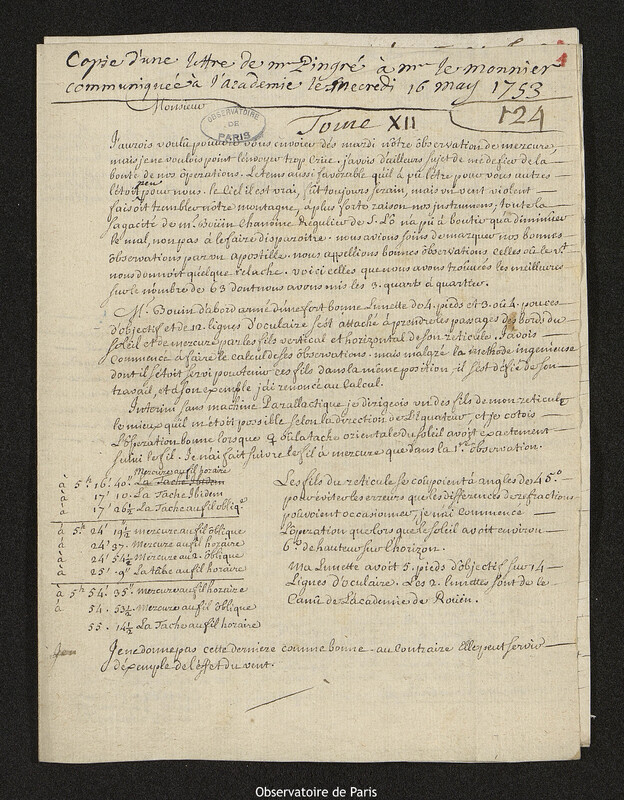 Copie d'une lettre de mr Pingré à mr le monnier
communiquée à l'academie le Mecredi 16 may 1753
4
Monsieur
OBSERVATOIRE
DE
PARIS
Tome XII
124
J'aurois voulû pouvoir vous envoier dés mardi nôtre observation de mercure,
mais je ne voulois point l'envoyer trop crüe. j'avois d'ailleurs sujet de me défier de la
bonté de nos operations. Le tems aussi favorable qu'il a pû l'être pour vous autres
l'étoit peu pour nous. le Ciel il est vrai, fût toujours serain, mais un vent violent
faisoit trembler nôtre montagne, à plus forte raison nos instrumens, toute la
sagacité de mr. Bouin Chanoine Régulier de S. Lô n'a pû aboutir qu'à diminuer
le mal, non pas à le faire disparoitre. nous avions soins de marquer nos bonnes
observations par un apostille. nous appellions bonnes observations celles où le vt.
nous donnoit quelque relache. voici celles que nous avons trouvées les meilleures
sur le nombre de 63 dont nous avons mis les 3. quarts à quartier.
Mr. Bouin d'abord armé d'une fort bonne Lunette de 4. pieds et 3. où 4. pouces
d'objectif et de 12. lignes d'oculaire s'est attaché à prendre les passages des bords du
soleil et de mercure par les fils vertical et horizontal de son reticule. J'avois
Commencé à faire le calcul de ses observations. mais malgré la methode ingenieuse
dont il s'étoit servi pour tenir ces fils dans la même position, il s'est défié de son
travail, et à son exemple j'ai renoncé au Calcul.
Interim sans machine Parallactique je dirigeois un des fils de mon reticule
le mieux qu'il m'étoit possible selon la direction de l'Equateur, et je cotois
L'operation bonne lorsque ☿ où la tache orientale du soleil avoit exactement
suivi le fil. Je n'ai fait suivre le fil à mercure que dans la 1re. observation.
Mercure au fil horaire
à 5h 16' 40" La Tache Ibidem
à 17' 10 La Tache Ibidem
à 17' 26½ La Tache au fil obliq.e
à 5h 24' 19½ mercure au fil oblique
à 24' 37 Mercure au fil horaire
à 24' 54½ Mercure au 2. oblique
à 25' 9" La tache au fil horaire
à 5h 54' 35" mercure au fil horaire
à 54. 53½ Mercure au fil oblique
55. 14½ La Tache au fil horaire
Les fils du reticule se coupoient à angles de 45°
pour éviter les erreurs que les différences de refractions
pouvoient occasionner, je n'ai commencé
L'operation que lorsque le soleil avoit environ
6°. de hauteur sur l'horizon.
Ma Lunette avoit 5. pieds d'objectif sur 14
Lignes d'oculaire. Les 2. lunettes sont de le
Camu de L'academie de Roüen.
Je ne donne pas cette derniere comme bonne. au contraire Elle peut servir
d'exemple de l'effet du vent.
Observatoire de Paris